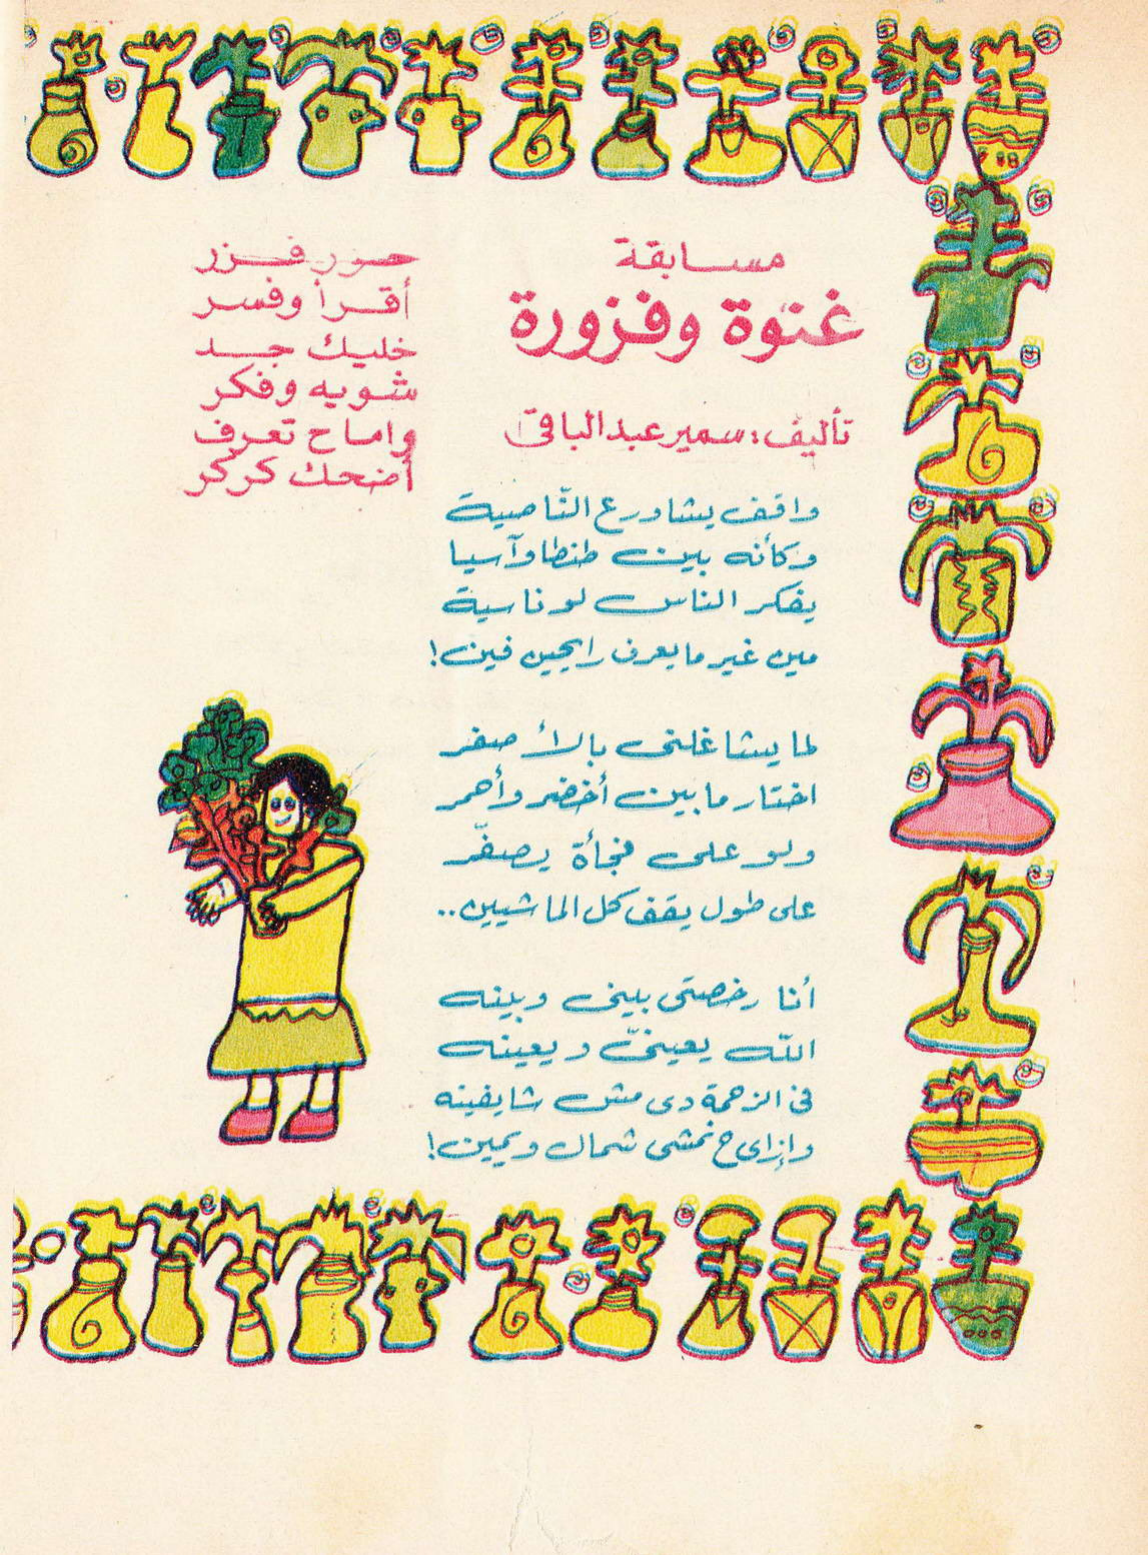 مسابقة
غنوة وفزورة
تأليف: سمير عبد الباقى
حزر فزر
أقرأ وفسر
خليك جد
شويه وفكر
واما ح تعرف
أضحك كركر
واقف يشاور ع النّاصية
وكأنه بين طنطا وآسيا
يفكر الناس لو ناسية
مين غير ما يعرف رايحين فين!
لما يشاغلنى بالأصفر
اختار ما بين أخضر وأحمر
ولو على فجأة يصفّر
على طول يقف كل الماشيين..
أنا رخصتى بينى وبينه
اللّه يعينىّ ويعينه
فى الزحمة دى مش شايفينه
وإزاى ح نمشى شمال ويمين!